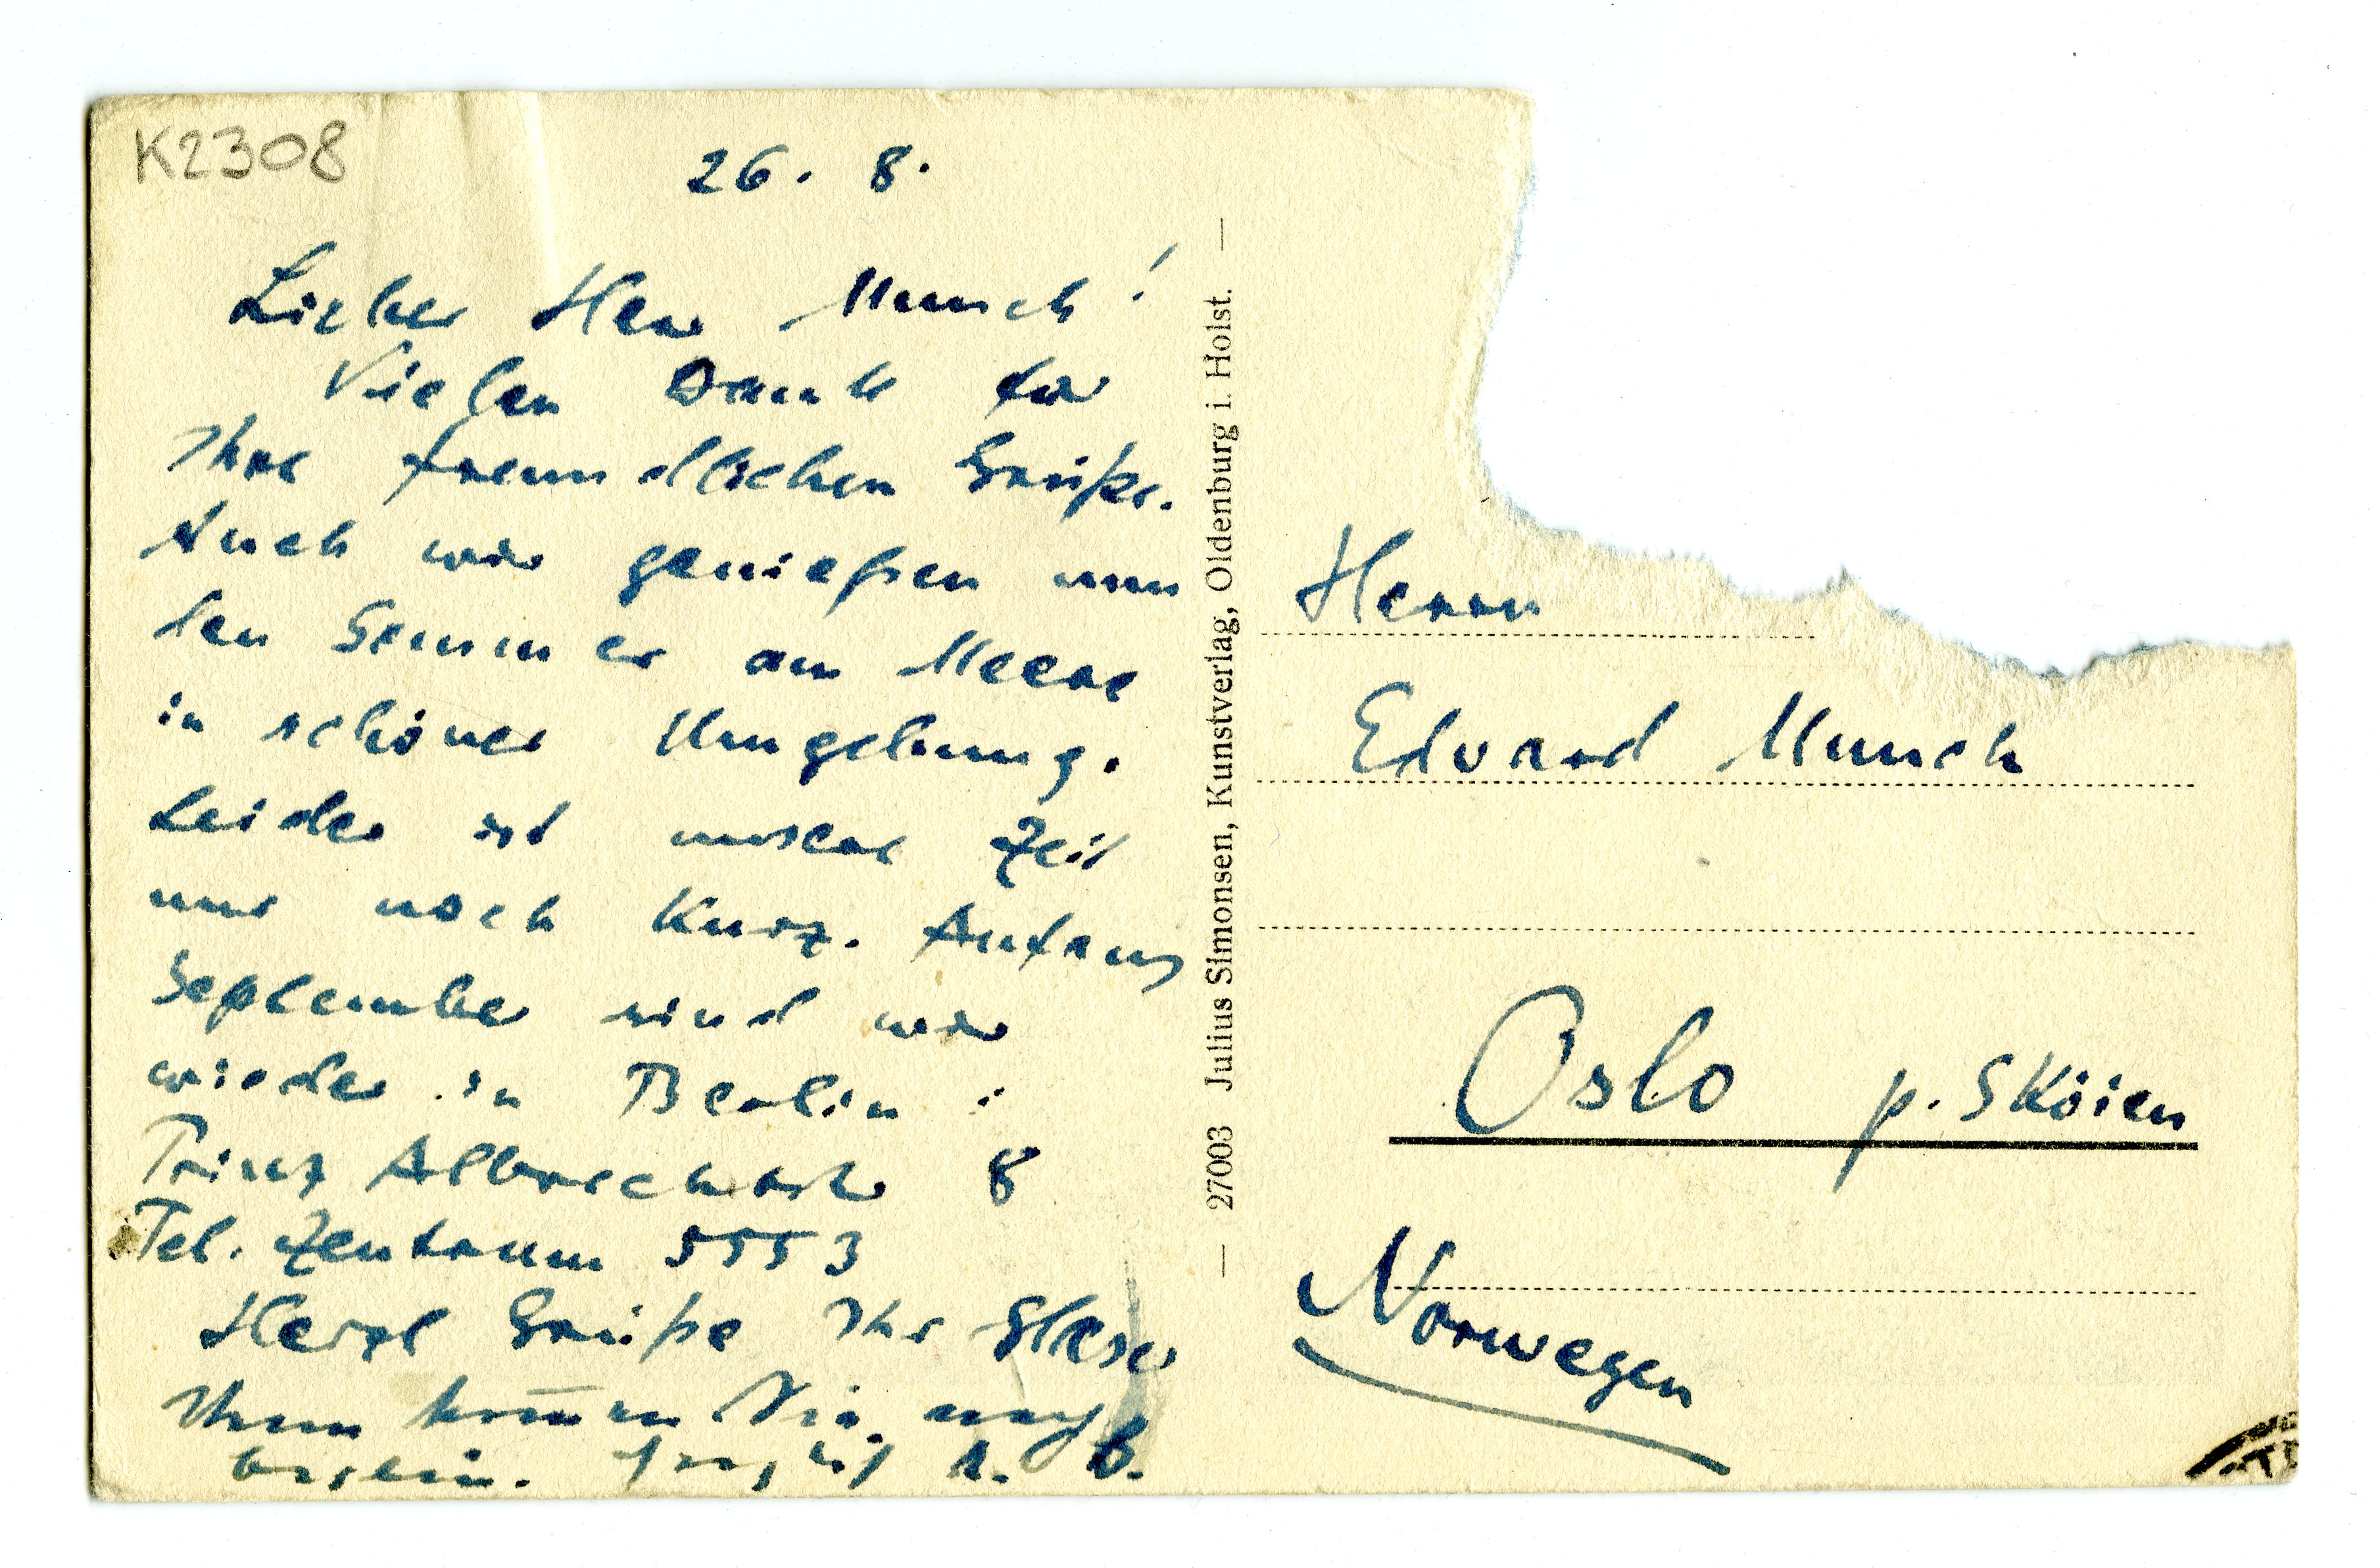 K2308
26. 8.
Lieber Herr Munch!
Vielen Dank für
Ihre freundlichen Grüße.
Auch wir genießen nun
den Sommer am Meere
in schöner Umgebung.
Leider ist unsere Zeit
nur noch kurz. Anfang
September sind wir
wieder in Berlin:
Prinz Albrechtstr 8
Tel. Zentrum 5553
Herzl Grüße Ihr Glaser
kom̄en Sie
27003 Julius Simonsen, Kunstverlag, Oldenburg i. Holst.
Herrn
Edvard Munch
Oslo p. Sköien
Norwegen